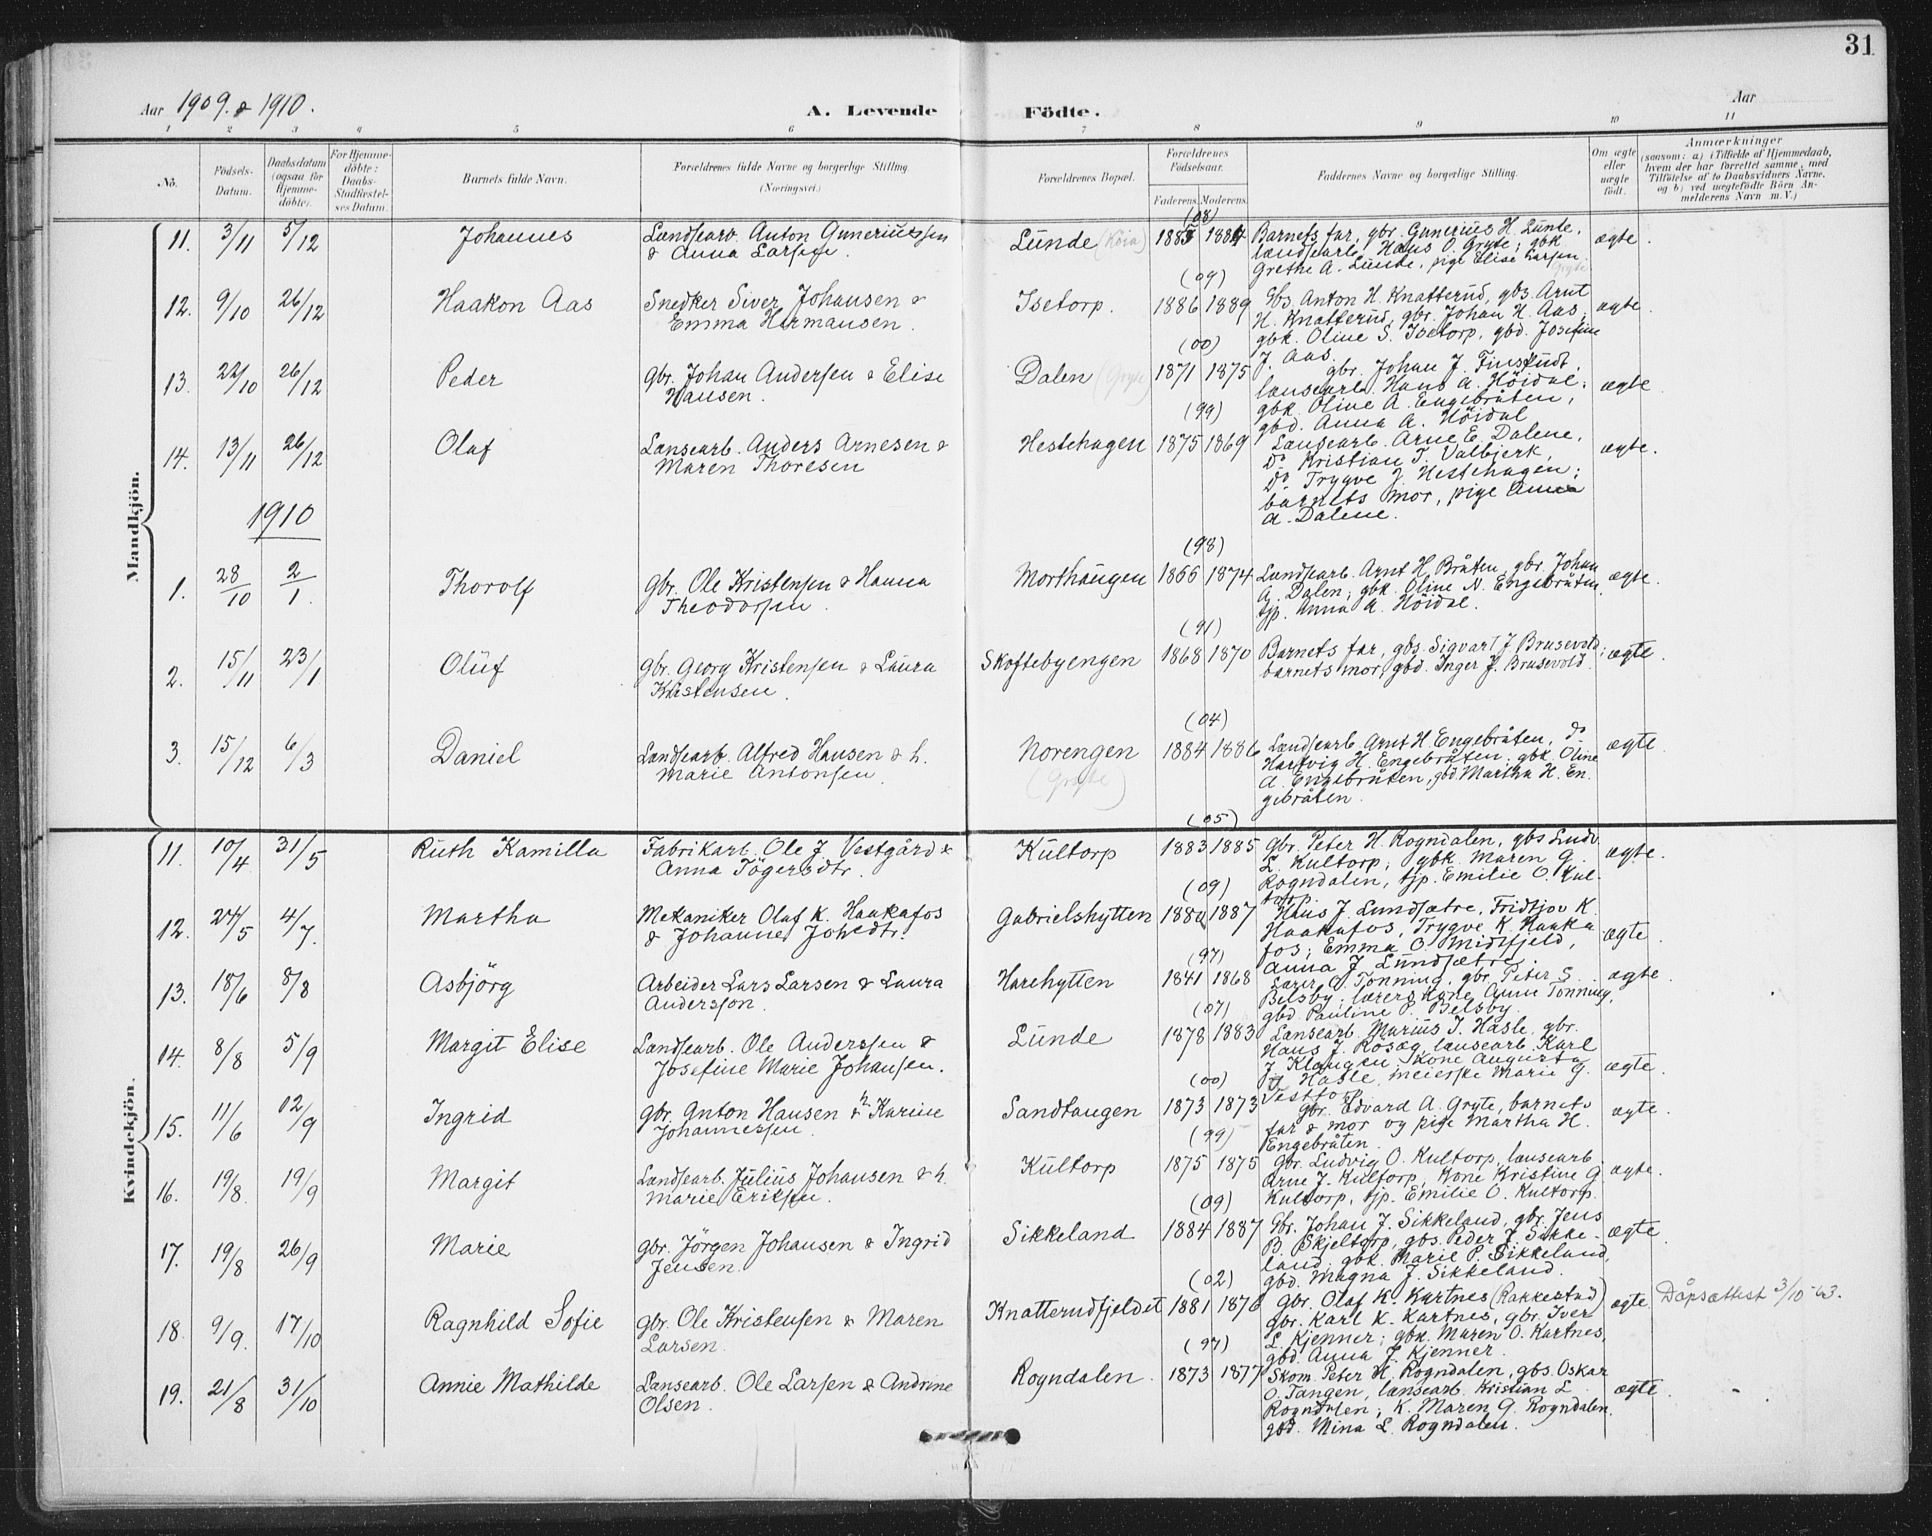 31
Aar 1909. & 1910.
A. Levende Födte.
Aar
1 2 3 4 5 6 7 8 9 10 11
No.
Födsels-Datum.
Daabsdatum (ogsaa for Hjemme-döbte).
For Hjemme-döbte: Daabs-Stadfæstel-ses Datum.
Barnets fulde Navn.
Forældrenes fulde Navne og borgerlige Stilling (Næringsvei.)
Forældrenes Bopæl.
Forældrenes Födselsaar.
Faderens. Moderens.
Faddernes Navne og borgerlige Stilling.
Om ægte eller uægte födt.
Anmærkninger
(saasom: a) i Tilfælde af Hjemmedaab, hvem der har forrettet samme, med Tilföielse af to Daabsvidners Navne, og b) ved uægtefödte Börn An-melderens Navn m. V.)
Mandkjön.
11. 3/11 5/12 Johannes
Landsearb. Anton Guneriussen
& Anna Larsen.
Lunde (Köia) (08) 1885 1884
Barnets far, gbr. Gunerius H. Lunde,
landsearb. Hans O. Gryte; gbk
Grethe A. Lunde, pige Elise Larsen
Gryte
ægte.
12. 9/10 26/12 Haakon Aas
Snedker Siver Johansen &
Emma Hermansen.
Isetorp. (09) 1886 1889
Gbs. Anton H. Knatterud, gbs. Arnt
H. Knatterud, gbr. Johan H. Aas,
gbk. Oline S. Isetorp, gbd. Josefine
J. Aas.
ægte.
13. 22/10 26/12 Peder
Gbr. Johan Andersen & Elise
Hansen.
Dalen (Gryte) (00) 1871 1875
gbr. Johan J. Finsrudt,
lansearb. Hans A. Höidal;
gbk. Oline A. Engebråten,
gbd. Anna A. Höidal
ægte.
14. 13/11 26/12 Olaf
Lansearb. Anders Arnesen &
Maren Thoresen
Hestehagen (99) 1875 1869
Lansearb. Arne E. Dalene,
Do Kristian T. Valbjerk,
Do Trygve J. Hestehagen;
barnets mor, pige Anna
A. Dalene.
ægte.
1910
1. 28/10 2/1. Thorolf
Gbr. Ole Kristensen & Hanna
Theodorsen.
Morthaugen (98) 1866 1874
Landsearb. Arnt H. Bråten, gbr. Johan
A. Dalen; gbk. Oline N. Engebråten,
tjp. Anna A. Höidal.
ægte.
2. 15/11 23/1 Oluf
Gbr. Georg Kristensen & Laura
Kristensen.
Skoftebyengen (91) 1868 1870
Barnets far, gbs. Sigvart J Brusevold;
barnets mor, gbd. Inger J. Brusevold.
ægte.
3. 15/12 6/3 Daniel
Landsearb. Alfred Hansen & h.
Marie Antonsen.
Norengen (Gryte) (04) 1884 1886
Landsearb. Arnt H. Engebråten, do
Hartvig H. Engebråten; gbk Oline
A. Engebråten, gbd Martha H. En-
gebråten.
ægte.
Kvindekjön.
11. 10/4 31/5 Ruth Kamilla
Fabrikarb. Ole J Vestgård &
Anna Tögersdtr.
Kultorp (05) 1883 1885
Gbr. Peter H. Rogndalen, gbs Ludv.
L. Kultorp; gbk. Maren G.
Rogndalen, tjp. Emilie O. Kul-
torp.
ægte.
12. 24/5 4/7. Martha
Mekaniker Olaf K. Haakafos
& Johanne Johsdtr.
Gabrielshytten (09) 1880 1887
Hans J. Lundsætre, Fridtjov K.
Haakafos, Trygve K. Haaka
fos; Emma O. Midtfjeld,
Anna J Lundsætre
ægte
13. 18/6 8/8 Asbjörg
Arbeider Lars Larsen & Laura
Anderson.
Harehytten (97) 1841 1868
Lærer O. Tonning, gbr. Peter S.
Belsby; lærers kone Anne Tonning,
gbd Pauline P. Belsby.
ægte.
14. 8/8 5/9 Margit Elise
Landsearb. Ole Anderssen &
Josefine Marie Johansen.
Lunde (07) 1878 1883
Lansearb. Marius J. Hasle, gbr.
Hans J. Rösæg, lansearb. Karl
J Klaugen; kone Augusta
J. Hasle, meierske Marie G.
Vestfos
ægte.
15. 11/6 12/9 Ingrid
gbr. Anton Hansen & h. Karine
Johannessen.
Sandtangen (00) 1873 1873
Gbr. Edvard A. Gryte, barnets
far & mor og pige Martha H.
Engebråten.
ægte.
16. 19/8. 19/9 Margit
Landsearb. Julius Johansen & h.
Marie Eriksen.
Kultorp (99) 1875 1875
Gbr. Ludvig O. Kultorp, lansearb.
Arne J. Kultorp, kone Kristine G
Kultorp, tjp. Emilie O. Kultorp.
ægte.
17. 19/8 26/9 Marie
Gbr. Jörgen Johansen & Ingrid
Jensen.
Sikkeland (09) 1884 1887
Gbr. Johan J. Sikkeland, gbr. Jens
B. Skjeltorp, gbs. Peder J. Sikke-
land; gbk. Marie P. Sikkeland,
gbd. Magna J. Sikkeland.
ægte.
18. 9/9. 17/10 Ragnhild Sofie
gbr. Ole Kristensen & Maren
Larsen.
Knatterudfjeldet (02) 1881 1876
Gbr. Olaf K. Kartnes (Rakkestad)
gbr. Karl K. Kartnes, gbr. Iver
L. Kjenner; gbk. Maren O. Kartnes,
gbd. Anna J. Kjenner.
ægte.
Dåpsattest 3/10-43.
19. 21/8 31/10 Annie Mathilde
Lansearb. Ole Larsen & Andrine
Olsen.
Rogndalen. (97) 1873 1877
Skom. Peter H. Rogndalen, gbs. Oskar
O. Tangen, lansearb. Kristian L
Rogndalen; k. Maren G. Rogndalen.
gbd. Mina L. Rogndalen.
ægte.